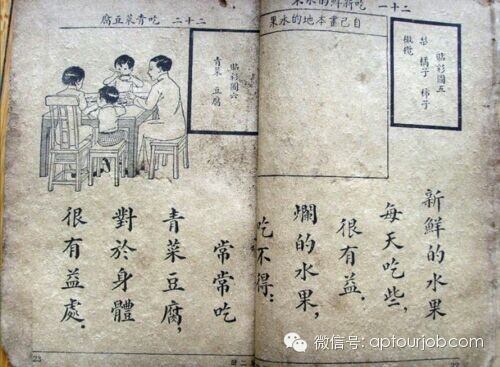 二十一 吃新鮮的水果
貼彩圖五
橘子 柿子
橄欖
自己畫本地的水果
新鮮的水果
每天吃些,
很有益.
爛的水果,
吃不得.
22
二十二 吃青菜豆腐
貼彩圖六
青菜 豆腐
常常吃
青菜豆腐,
對於身體
很有益處.
23
微信号: aptourjob.com